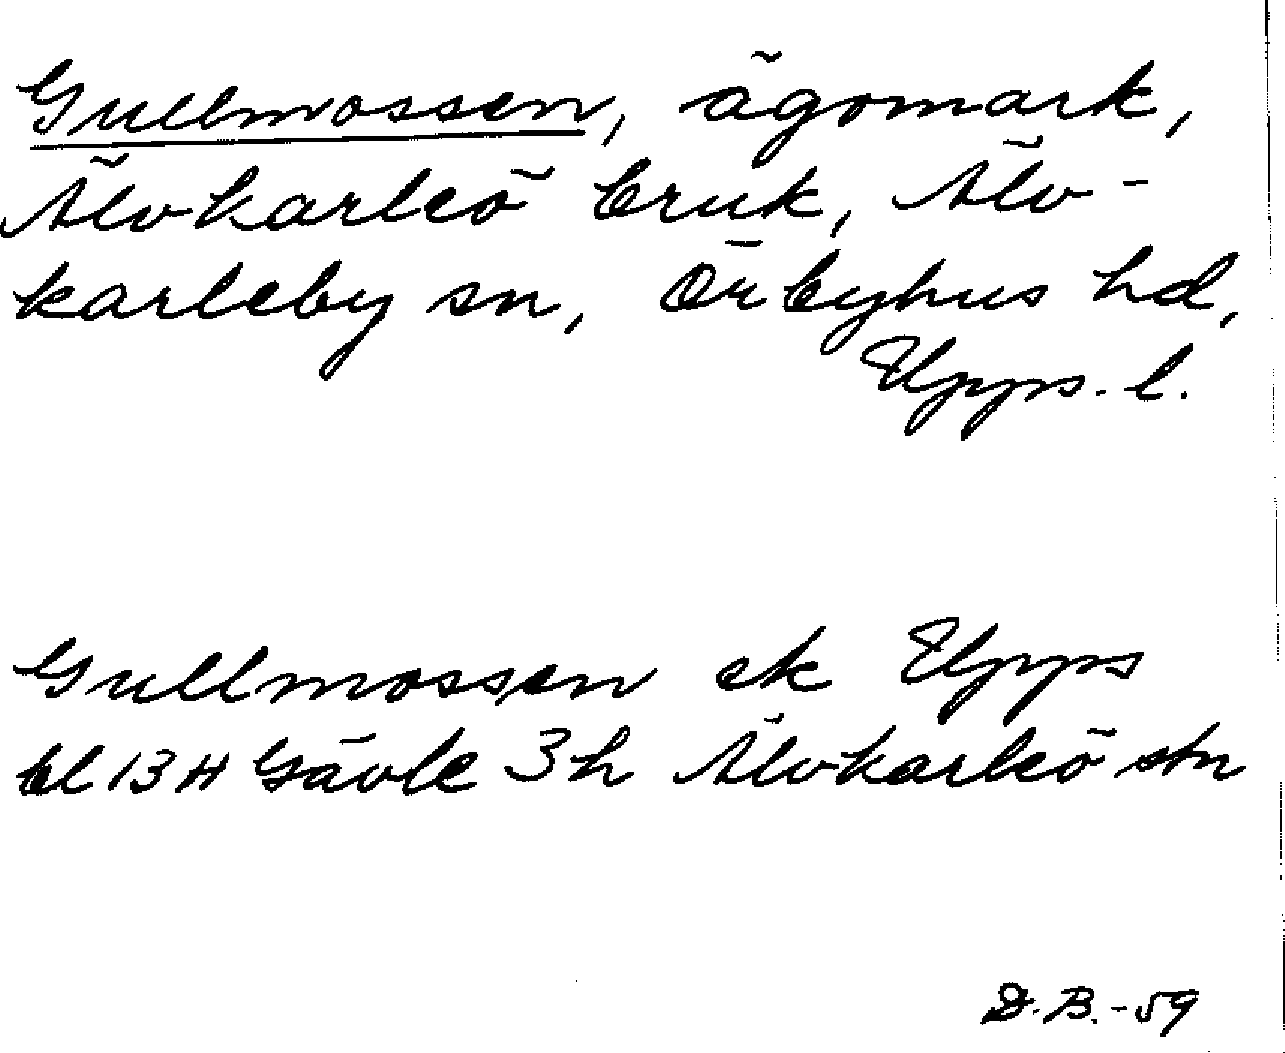 Gullmossen, ägomark,
Älvkarleö bruk, Älv-
karleby sn, Örbyhus hd,
Upps. l.
Gullmossen ek Upps
bl 13 H Gävle 3h Älvkarleö stn
D.B.-59